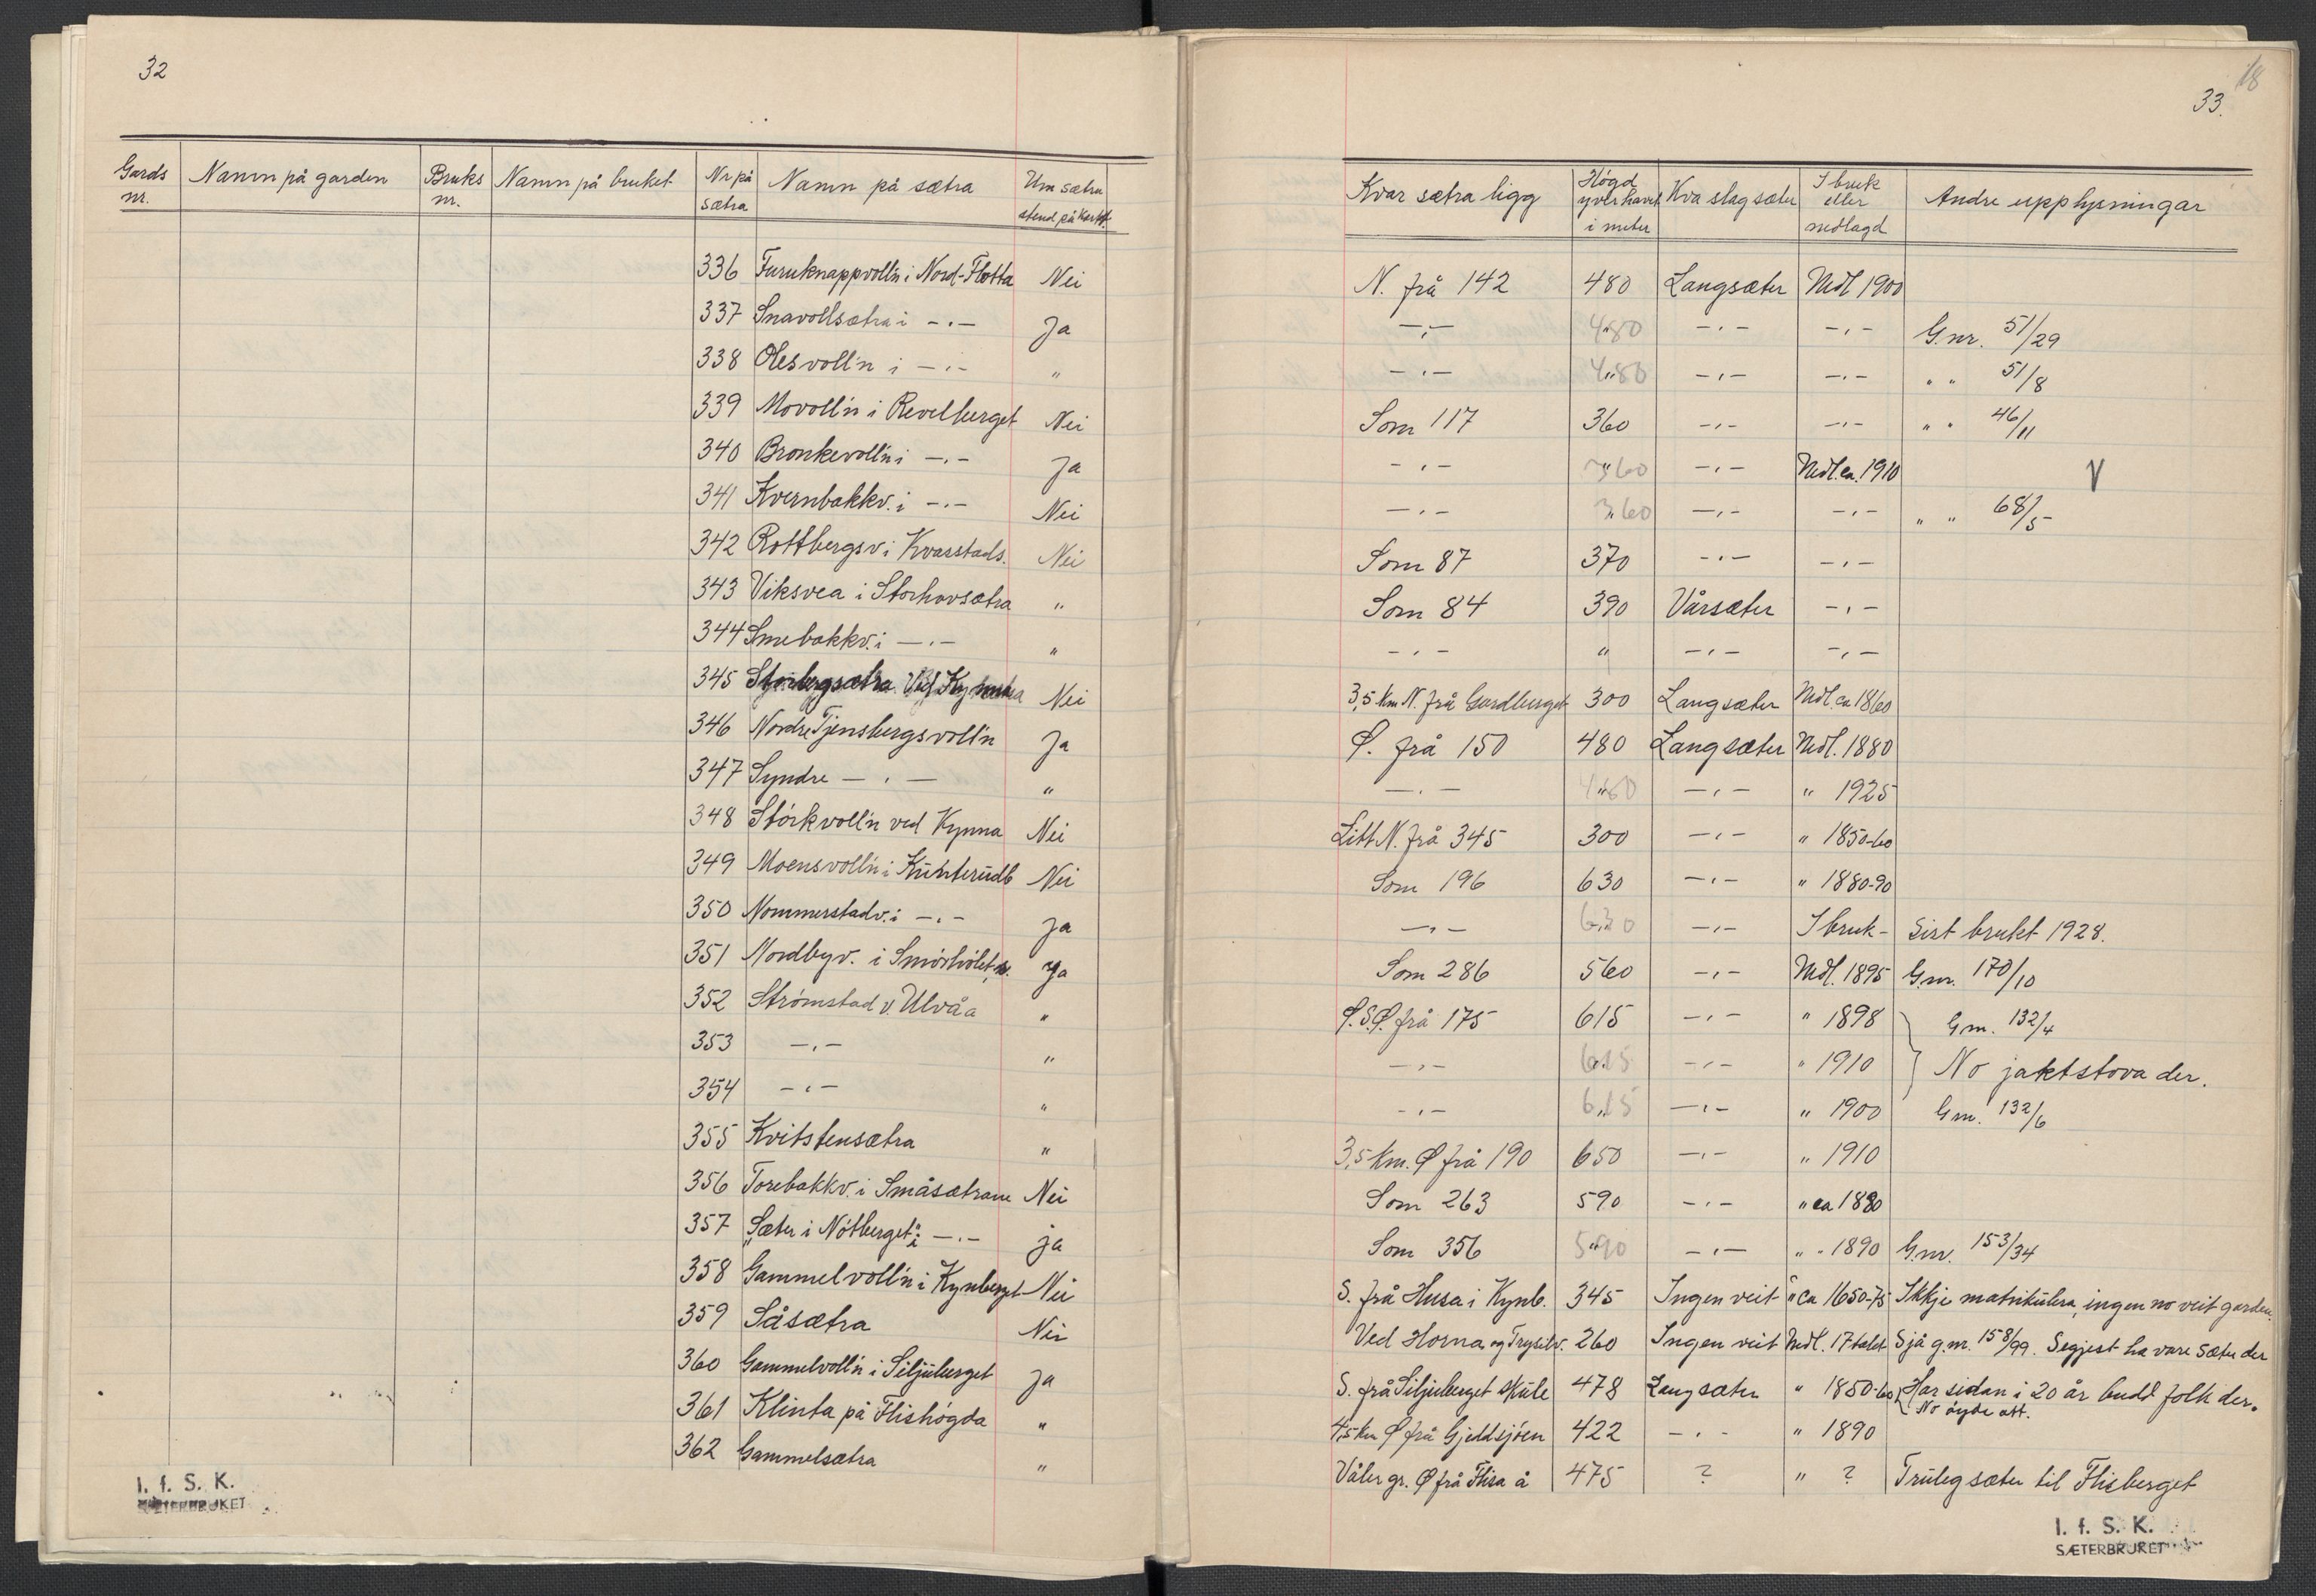 32
Gards nr. Namn på garden Bruks nr. Namn på bruket Nr på sætra Namn på sætra Um sætra stend på kartet.
336 Furuknappvoll'n i Nord-Flotta Nei
337 Snavollsætra i -"- Ja
338 Olesvoll'n i -"- "
339 Movoll'n i Revelberget Nei
340 Bronkevoll'n i -"- Ja
341 Kvernbakkv. i -"- Nei
342 Rottbergsv. i Kvarstads. Nei
343 Viksvea i Storhovsætra "
344 Smebakkv. i -"- "
345 Storbergsætra Ved Kynna Nei
346 Nordre Tjensbergsvoll'n Ja
347 Syndre -"- "
348 Storkvoll'n ved Kynna Nei
349 Moensvoll'n i Künterudb Nei
350 Nommerstadv. i -"- Ja
351 Nordbyv. i Smörhólet, Ja
352 Strömstad v. Ulvåa "
353 -"- "
354 -"- "
355 Kvitstensætra "
356 Torebakkv. i Småsætrane Nei
357 "Sæter i Nötberget" i -"- ja
358 Gammelvoll'n i Kynberget Nei
359 Såsætra Nei
360 Gammelvoll'n i Siljuberget Ja
361 Klinta på Flishögda "
362 Gammelsætra "
I. f. S. K.
SÆTERBRUKET
18
33.
Kvar sætra ligg Högd yver havet i meter Kva slag sæter I bruk eller nedlagd Andre upplysningar
N. frå 142 480 Langsæter Nedl 1900
-"- 480 -"- -"- G.nr. 51/29
-"- 480 -"- -"- " " 51/8
Som 117 360 -"- -"- " " 46/11
-"- 360 -"- Nedl. ca. 1910 V
-"- 360 -"- -"- " " 68/5
Som 87 370 -"- -"-
Som 84 390 Vårsæter -"-
-"- " -"- -"-
3,5 km N. frå Gardberget 300 Langsæter Nedl. ca 1860
Ø. frå 150 480 Langsæter Nedl. 1880
-"- 480 -"- " 1925
Litt N. frå 345 300 -"- " 1850-60
Som 196 630 -"- " 1880-90
-"- 630 -"- I bruk - Sist brukt 1928.
Som 286 560 -"- Nedl. 1895 G.nr. 170/10
Ø.S.Ø. frå 175 615 -"- " 1898 G.nr. 132/4
-"- 615 -"- " 1910 No jaktstova der.
-"- 615 -"- " 1900 G.nr. 132/6
3,5 km. Ø frå 190 650 -"- " 1910
Som 263 590 -"- " ca 1880
Som 356 590 -"- " " 1890 G.nr. 153/34
S. frå Husa i Kynb. 345 Ingen veit " ca 1650-75 Ikkje matrikulera, ingen no veit garden.
Ved Horna og Trysilv. 260 Ingen veit Nedl. 17 talet Sjå g.nr. 158/99. Segjest ha vore sæter der
S. frå Siljuberget skule 478 Langsæter " 1850-60 Har sidan i 20 år budd folk der.
No öyde att.
4,5 km Ø frå Gjeddsjöen 422 -"- " 1890
Våler gr. Ø frå Flisa å 475 ? " ? Truleg sæter til Flisberget
I. f. S. K.
SÆTERBRUKET